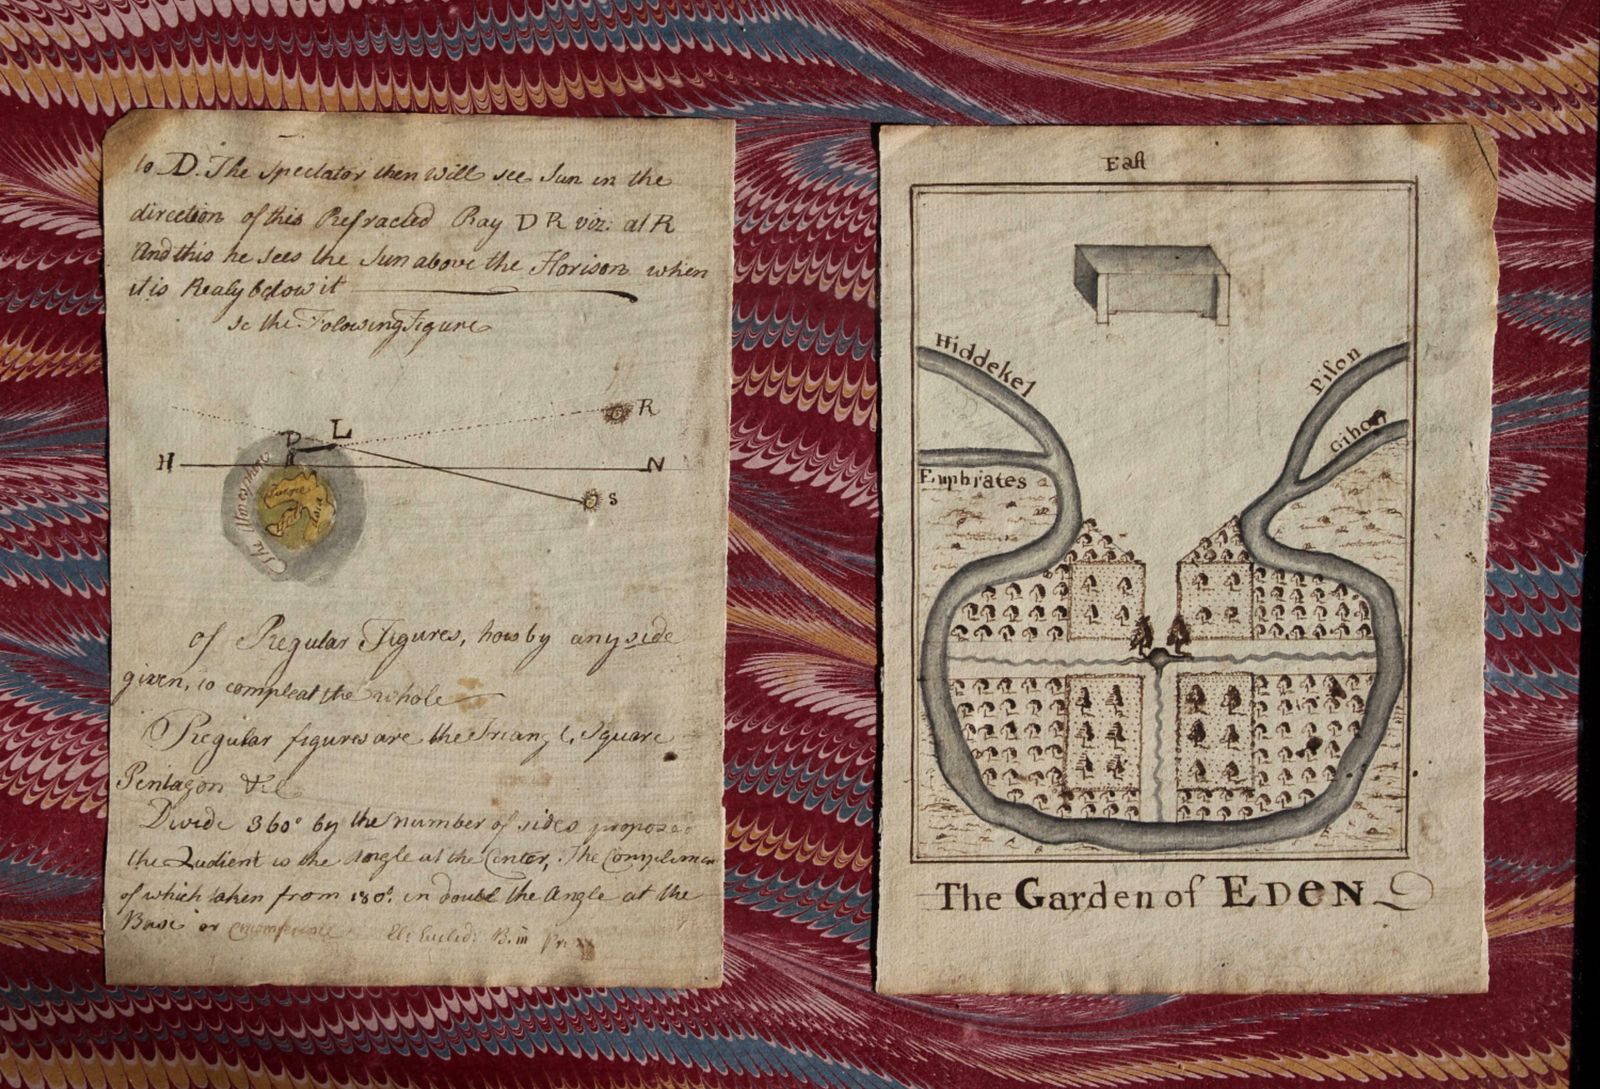 to D. The Spectator then Will see Sun in the
direction of this Refracted Ray D R viz: at R
And this he sees the Sun above the Horison when
it is Realy below it
se the Folowing Figure
R
D L
H N
S
The Atmosphere
Europe
Asia
of Regular Figures, how by any side
given, to compleat the whole
Regular figures are the Triangl, Square
Pentagon &c
Divide 360° by the number of sides propose
the Qudient is the Angle at the Center, The Complimen
of which taken from 180°. in doubl the Angle at the
Base or circumference El: Euclid: B. iii Pr: xx
East
Hiddekel
Pison
Gihon
Euphrates
The Garden of EDEN